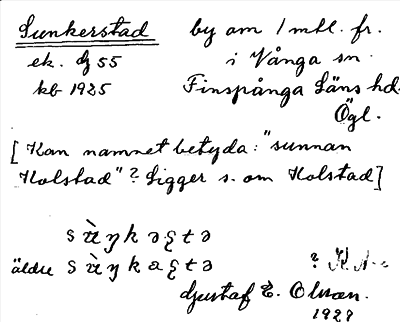 Sunkerstad by om 1 mtl. fr.
ek. bl 55 i Vånga sn
kb 1925 Finspånga Läns hd.
Ögl.
[Kan namnet betyda: "sunnan
Kolstad"? Ligger s. om Kolstad]
s ὰ ŋ k ə ʂ t ə
äldre s ὰ ŋ k a ʂ t ə ?
Gustaf E. Olsson.
1929